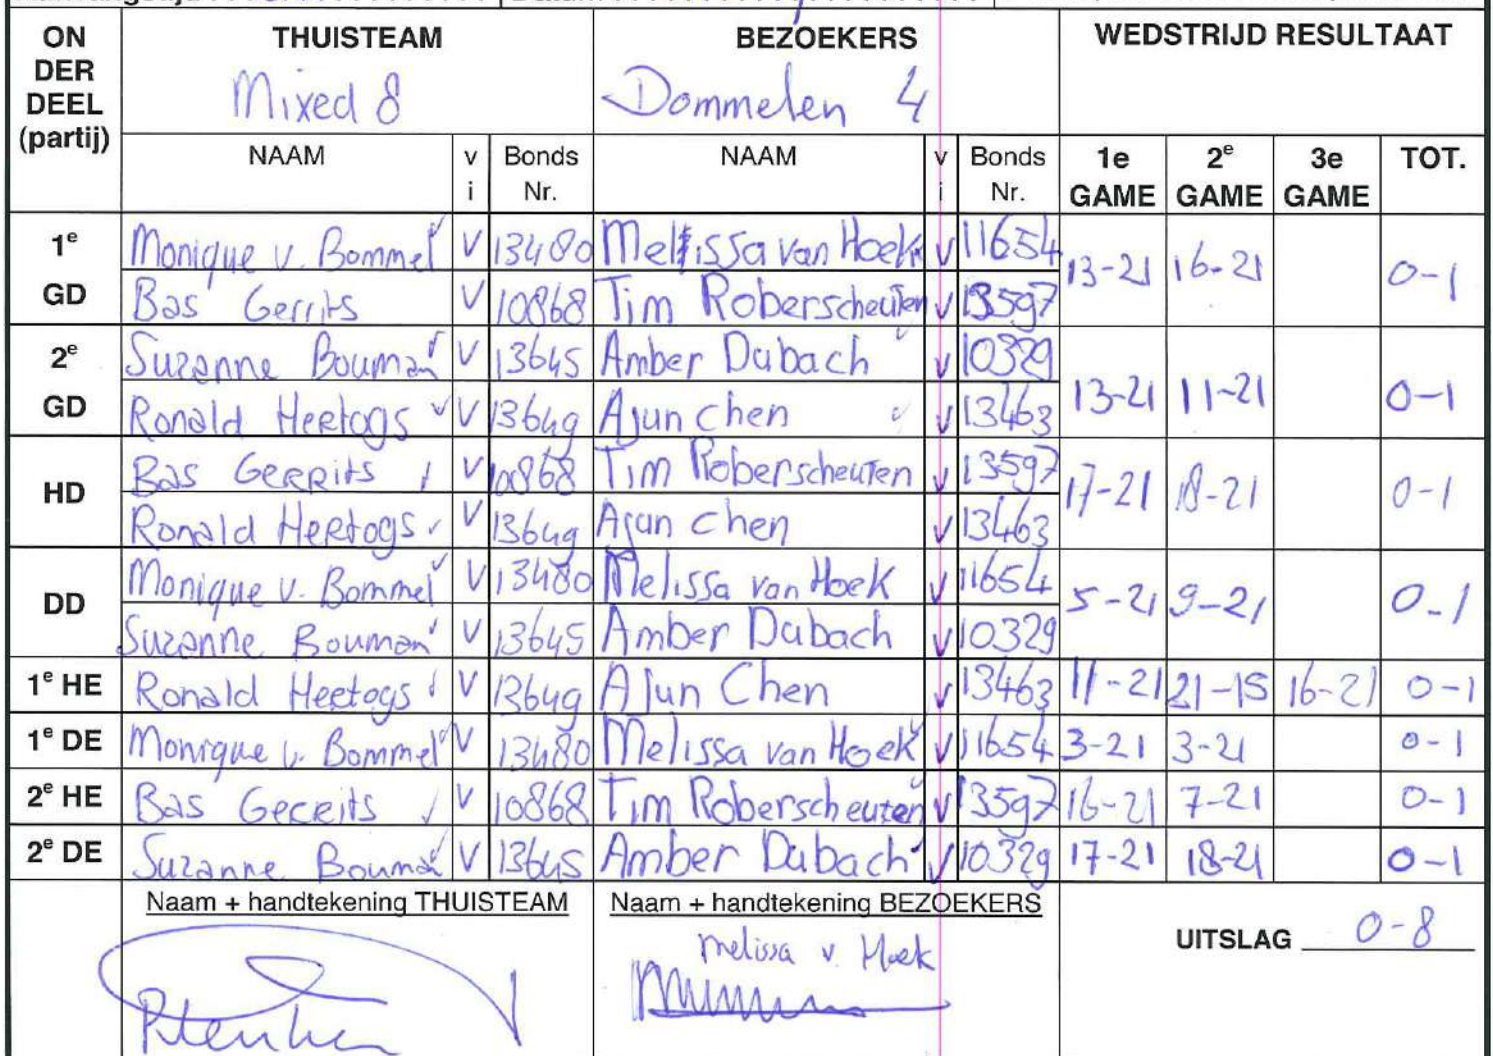 ON DER DEEL (partij) THUISTEAM BEZOEKERS WEDSTRIJD RESULTAAT
Mixed 8 Dommelen 4
NAAM vi Bonds Nr. NAAM vi Bonds Nr. 1e GAME 2e GAME 3e GAME TOT.
1e GD Monique v. Bommel V 13480 Melissa van Hoek v 11654 13-21 16-21 0-1
Bas Gerrits V 10868 Tim Roberscheuten v 13597
2e GD Suzanne Bouman V 13645 Amber Dubach v 10329 13-21 11-21 0-1
Ronald Heetogs V 13649 Ajun chen v 13463
HD Bas Gerrits V 10868 Tim Roberscheuten v 13597 17-21 18-21 0-1
Ronald Hertogs V 13649 Ajun chen v 13463
DD Monique v. Bommel V 13480 Melissa van Hoek v 11654 5-21 9-21 0-1
Suzanne Bouman V 13645 Amber Dubach v 10329
1e HE Ronald Heetogs V 13649 Ajun Chen v 13463 11-21 21-15 16-21 0-1
1e DE Monique v. Bommel V 13480 Melissa van Hoek v 11654 3-21 3-21 0-1
2e HE Bas Gerrits V 10868 Tim Roberscheuten v 13597 16-21 7-21 0-1
2e DE Suzanne Bouman V 13645 Amber Dubach v 10329 17-21 18-21 0-1
Naam + handtekening THUISTEAM Naam + handtekening BEZOEKERS
melissa v. Hoek
UITSLAG 0-8